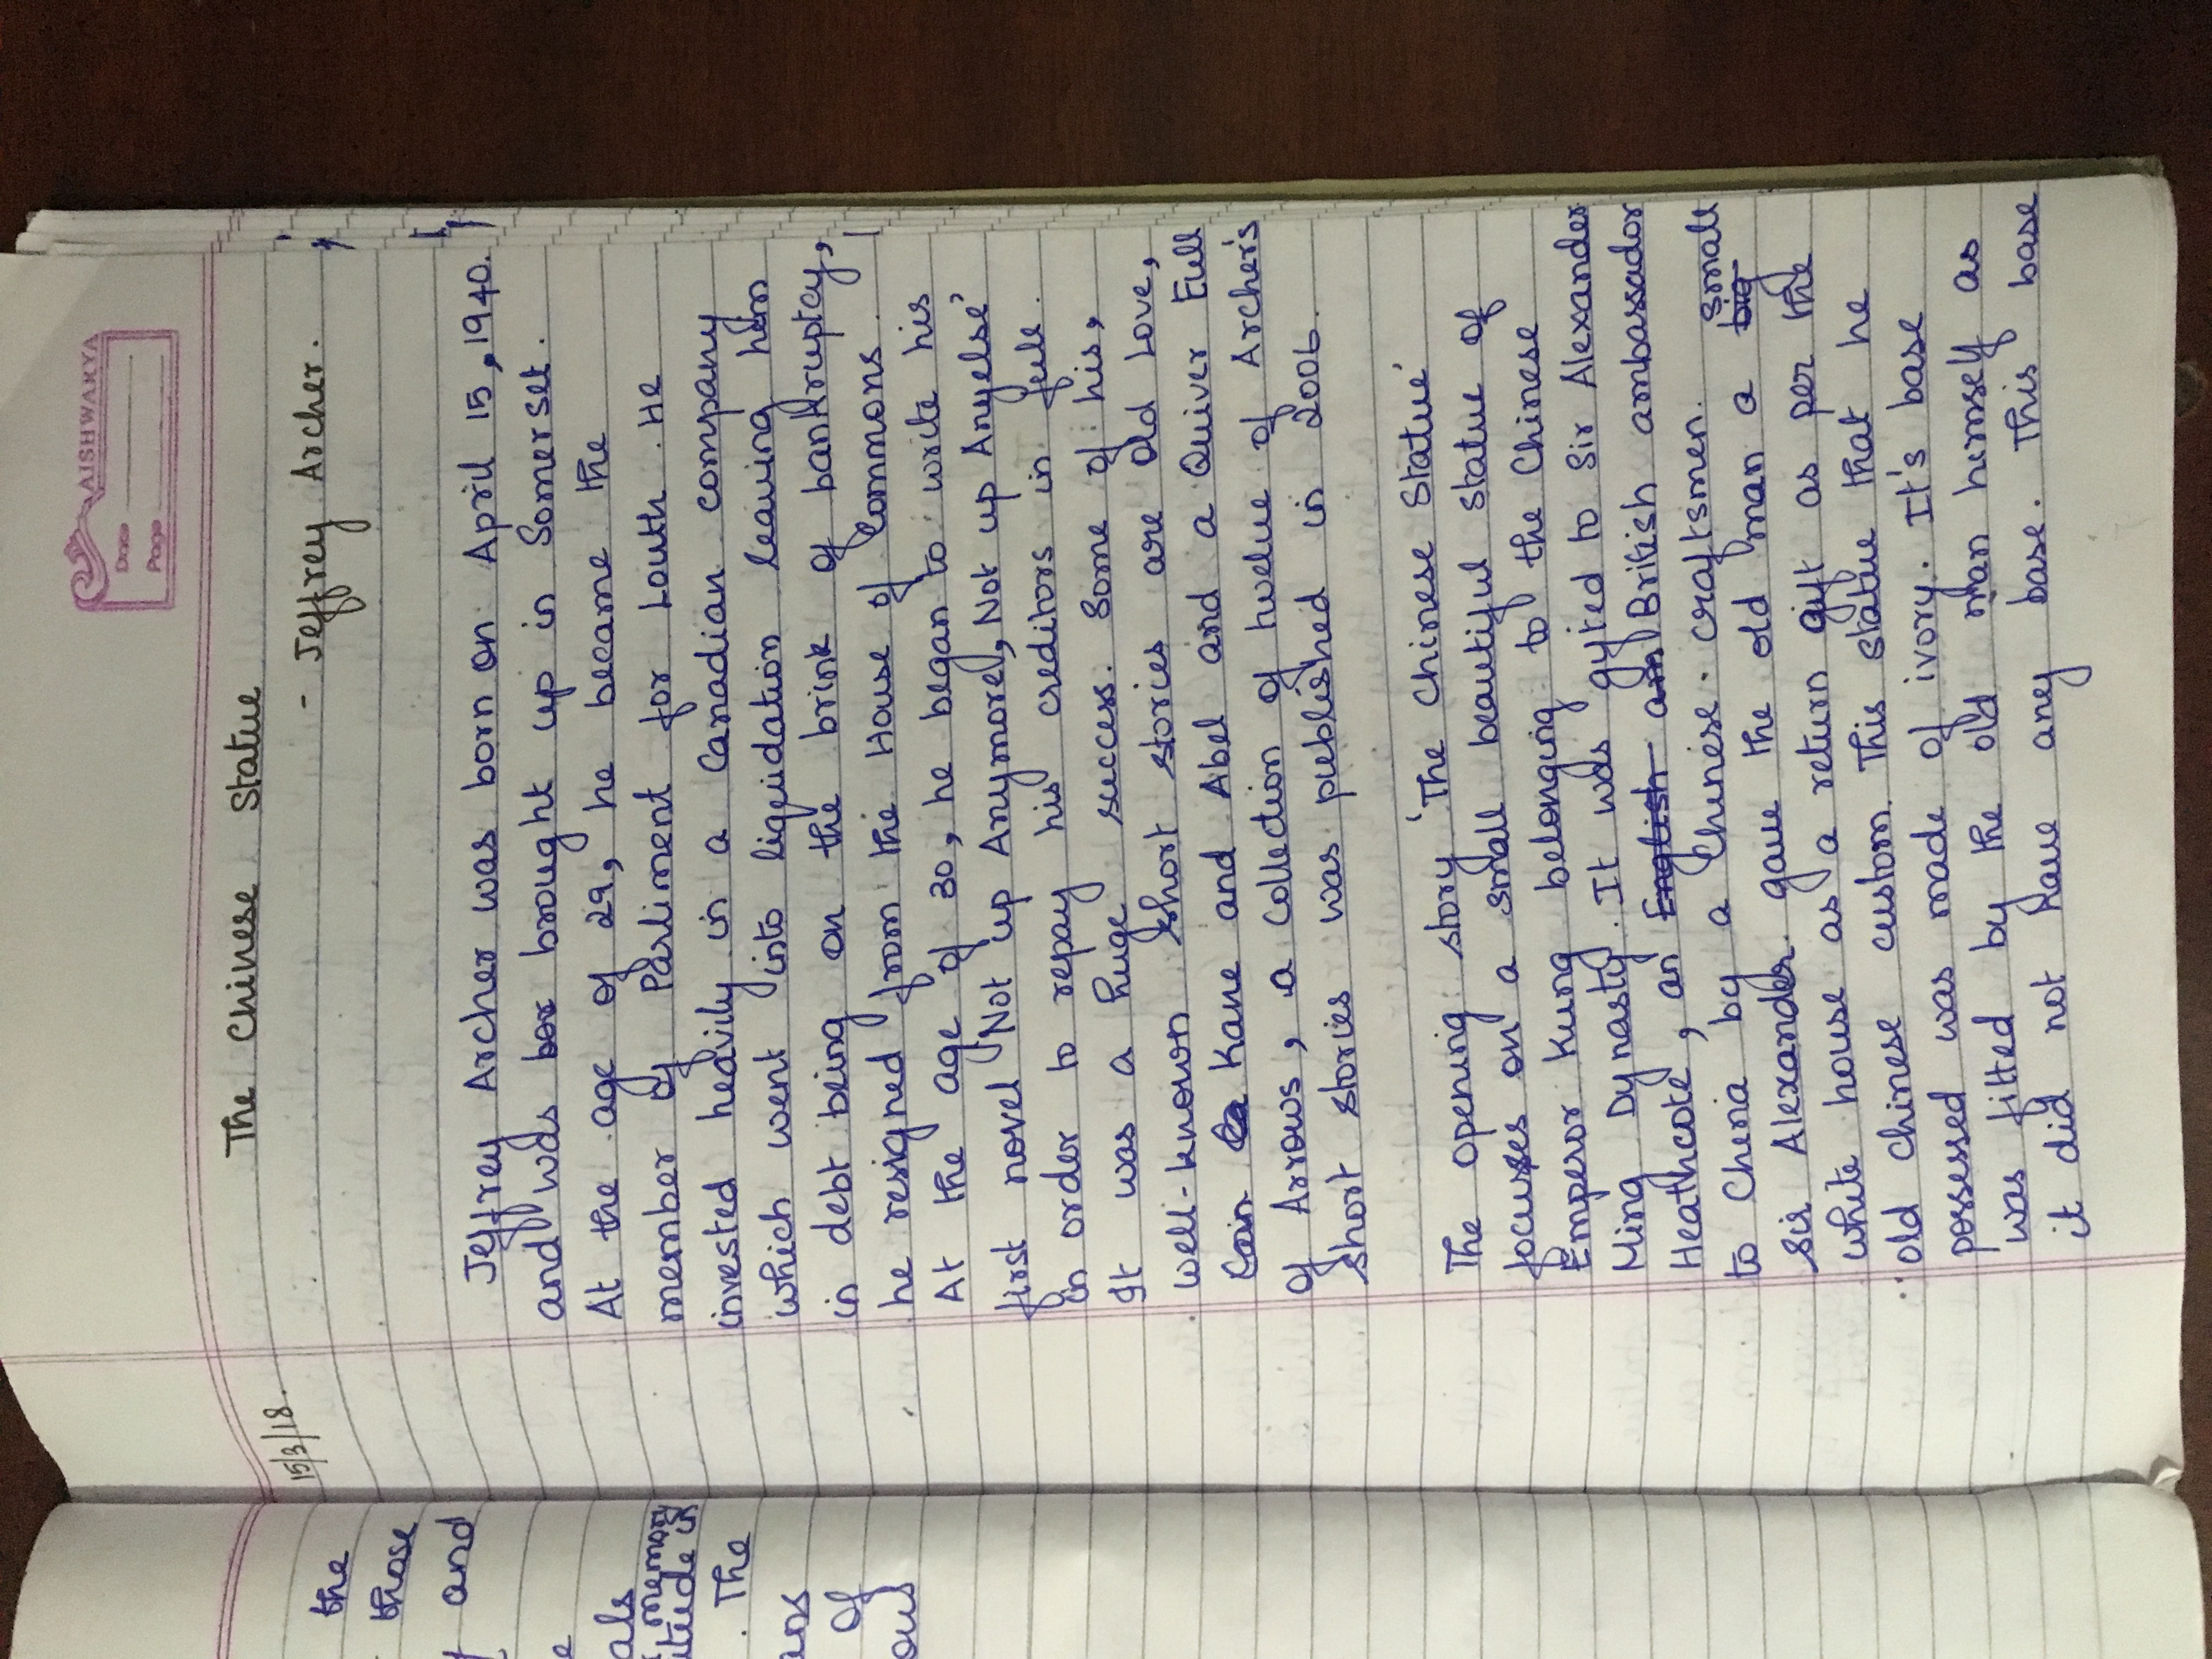 AISHWARYA
Date
Page
The Chinese Statue
15/3/18.
- Jeffrey Archer.
the
those
and
e
als
memory
itude in
. The
ans
of
ous
Jeffrey Archer was born on April 15, 1940.
and was bor brought up in Somerset.
At the age of 29, he became the
member of Parliment for Louth. He
invested heavily in a Canadian company
which went into liquidation leaving him
in debt being on the brink of bankruptcy,
he resigned from the House of Commons.
At the age of 30, he began to write his
first novel 'Not up Anymore, Not up Anyelse'
in order to repay his creditors in full.
It was a huge success. Some of his,
well-known short stories are Old Love,
Cain Ca Kane and Abel and a Quiver Full
of Arrows, a collection of twelve of Archer's
short stories was published in 2006.
The opening story 'The Chinese Statue'
focuses on a small beautiful statue of
Emperor Kung belonging to the Chinese
Ming Dynasty. It was gifted to Sir Alexander
Heathcote, an English am British ambassador
to China by a Chinese craftsmen.
Sir Alexander gave the old man a big small
white house as a return gift as per the
old chinese custom. This statue that he
possessed was made of ivory. It's base
was fitted by the old man himself as
it did not have any base. This base